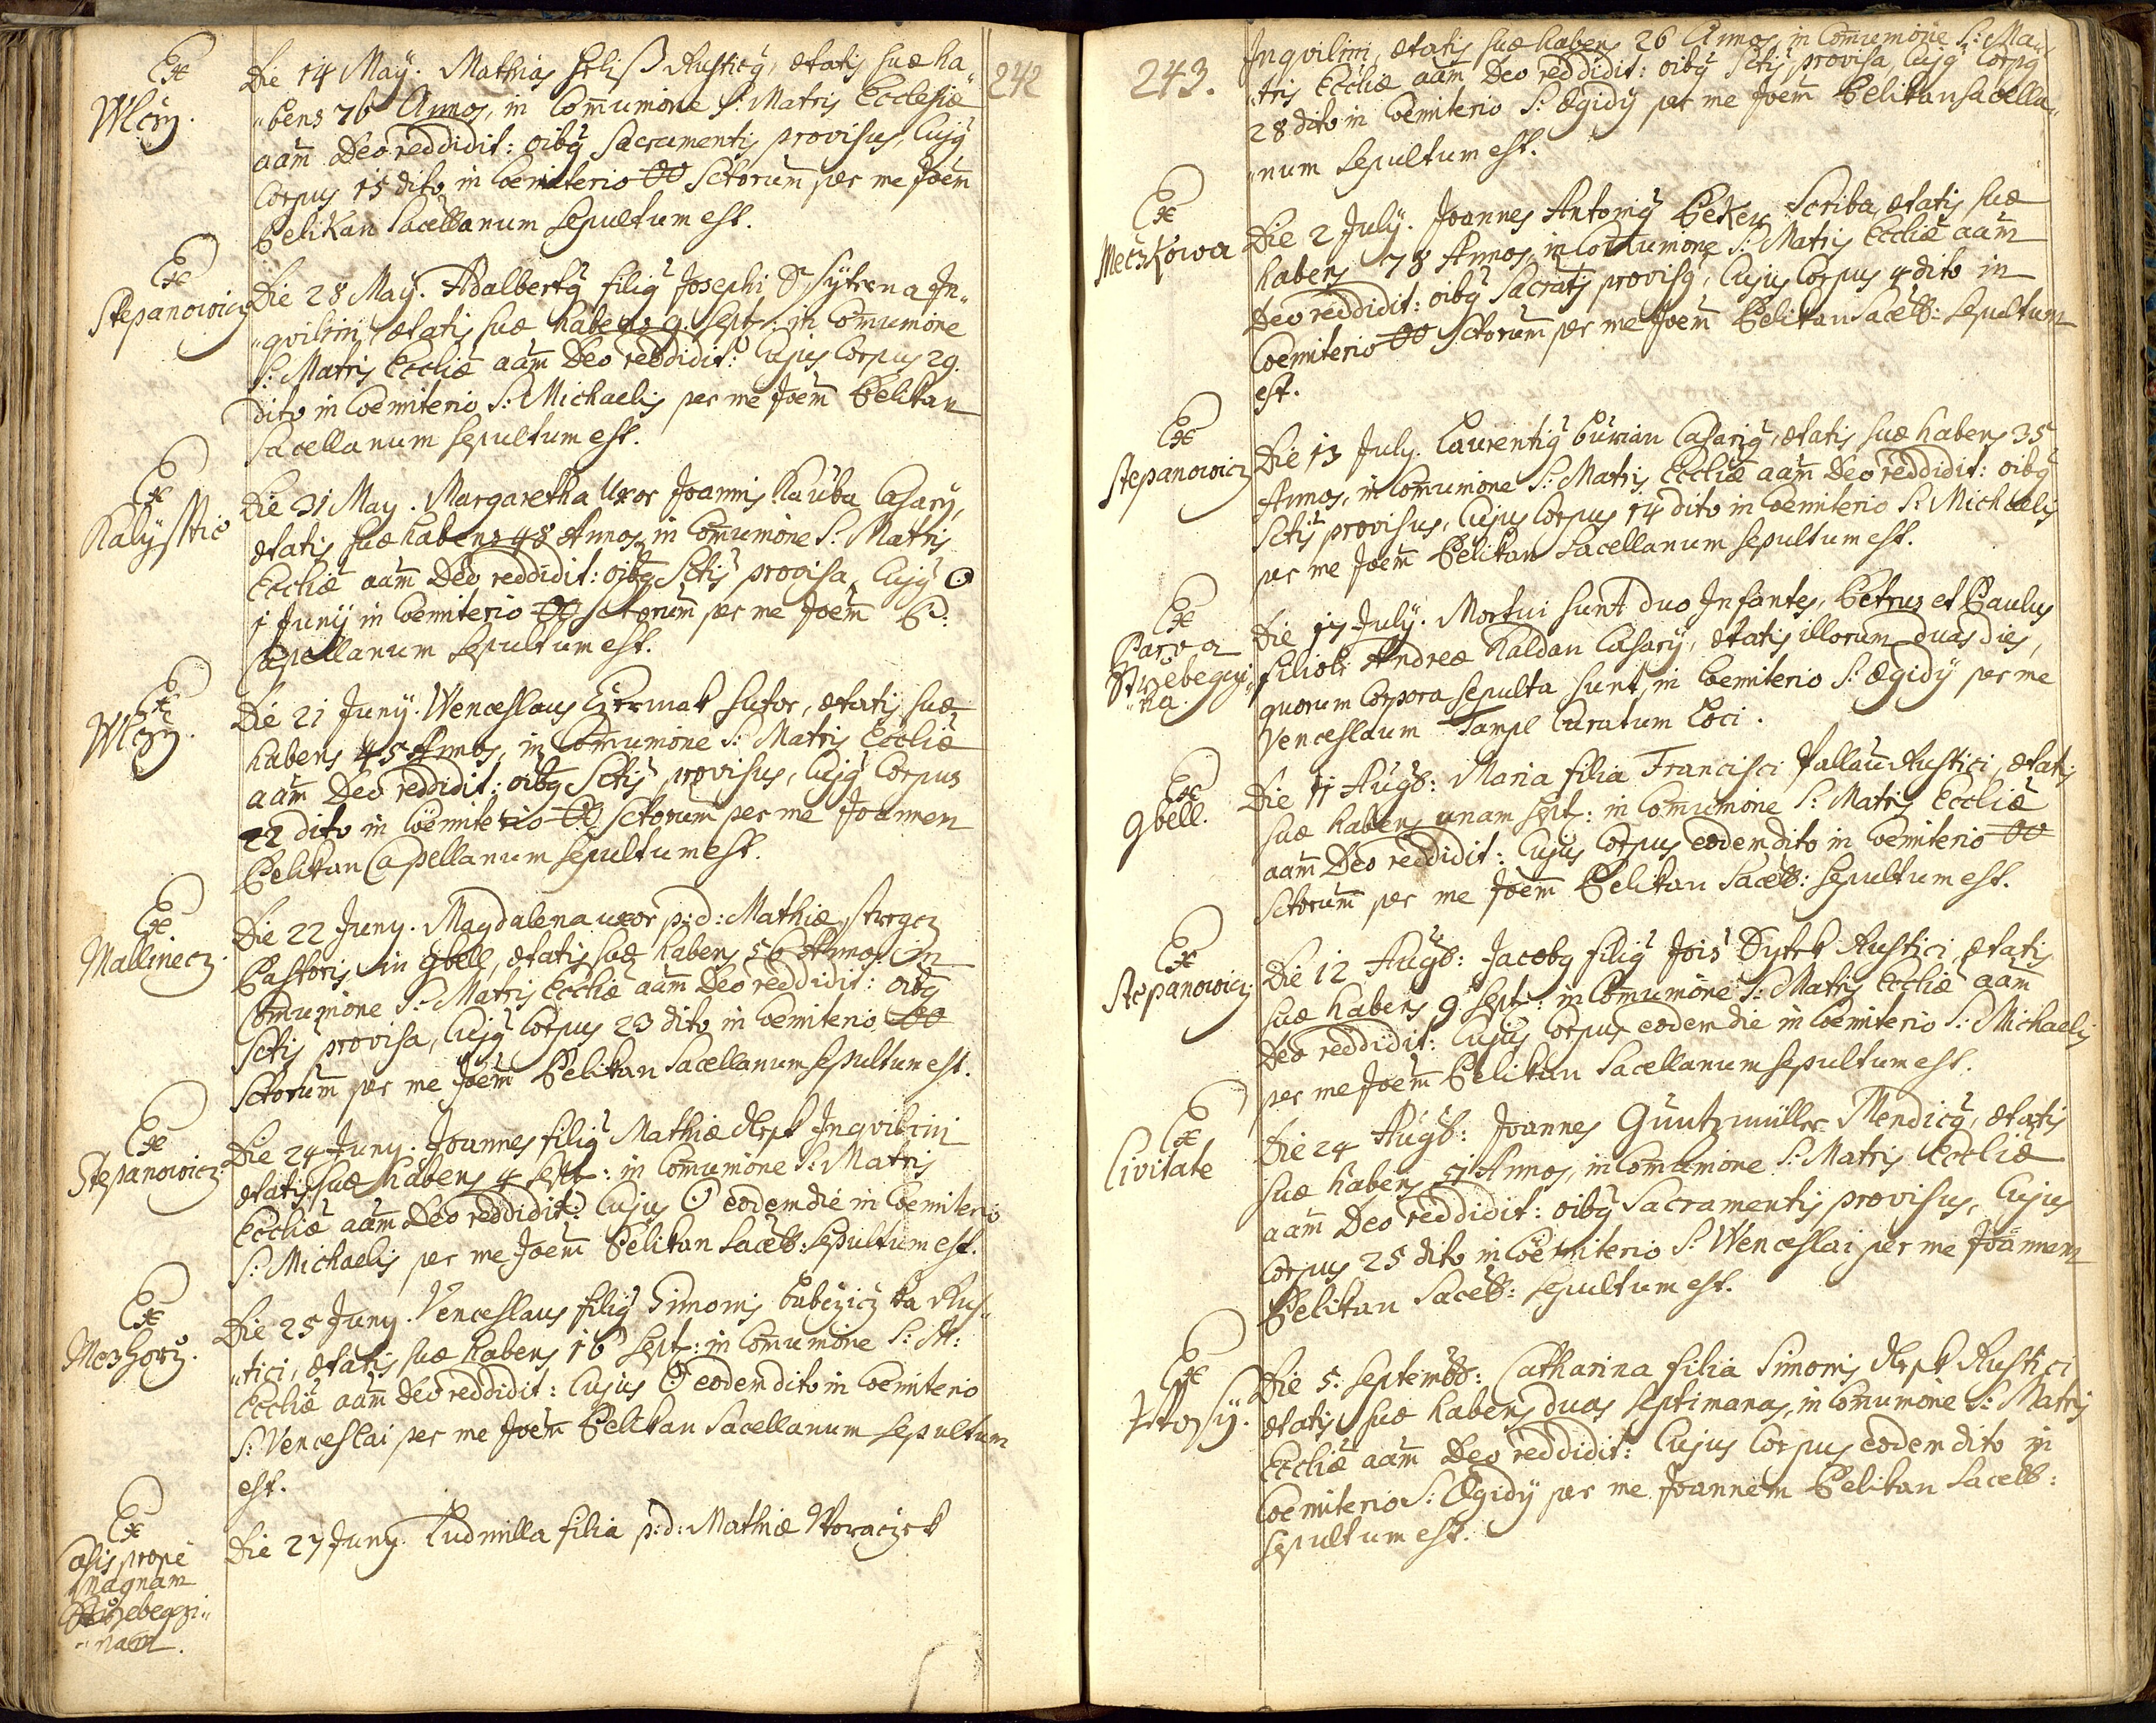 242
Ex
Wlczy.
Die 14 Maÿ. Mathias Heliß Rusticq, ætatis suæ ha„
„bens 76 Annos, in Comunione S: Matris Ecclesiæ
aam Deo reddidit: oibq Sacramentis provisus, Cujq
Corpus 15 dito in Coemiterio OO Sctorum per me Joem
Pelikan Sacellanum Sepultum est.
Ex
Stepanowicz
Die 28 Maÿ. Adalbertq filiq Josephi Syk In„
„qvilini ætatis suæ habens 9 Sept: in Comunione
S: Matris Eccliæ aam Deo reddidit: Cujus Corpus 29.
dito in Coemiterio S: Michaelis per me Joem Pelikan
Sacellanum sepultum est.
Ex
Kalisstie
Die 31 May. Margaretha Uxor Joannis Kauba Casarÿ,
ætatis suæ habens 48 Annos, in Comunione S: Matris
Eccliæ aam Deo reddidit: oibq Sctis provisa, Cujq ʘ
1 Junÿ in Coemiterio OO Sctorum per me Joem P:
Capellanum Sepultum est.
Ex
Wlczy.
Die 21 Junÿ. Wenceslaus Czermak Sutor, ætatis suæ
habens 45 Annos, in Comunione S: Matris Eccliæ
aam Deo reddidit: oibq Sctis provisus, Cujq Corpus
22 dito in Coemiterio OO Sctorum per me Joannem
Pelikan Capellanum sepultum est.
Ex
Mallinecz.
Die 22 Juny. Magdalena uxor p:d: Mathiæ
Pastoris in Gbell, ætatis suæ habens 56 Annos in
Comunione S: Matris Eccliæ aam Deo reddidit: oibq
Sctis provisa, Cujq Corpus 23 dito in Coemiterio OO
Sctorum per me Joem Pelikan Sacellanum sepultum est.
Ex
Stepanowicz.
Die 24 Juny. Joannes filiq Mathiæ Krpk Inqvilini
ætatis suæ habens 4 Sept: in Comunione S: Matris
Eccliæ aam Deo reddidit: Cujus ʘ eodem die in Coemiterio
S: Michaelis per me Joem Pelikan Sacell: sepultum est.
Ex
Mezhorz.
Die 25 Juny. Venceslaus filiq Simonis Bubczicz ka Rus„
„tici, ætatis suæ habens 16 Sept: in Comunione S: M:
Eccliæ aam Deo reddidit: Cujus ʘ eodem dito in Coemiterio
S: Venceslai per me Joem Pelikan Sacellanum sepultum
est.
Ex
Casis prope
Magnam
„nam.
Die 27 Juny. Ludmilla filia p:d: Mathiæ Woraczek
243.
Inqvilini, ætatis suæ habens 26 Annos, in Comunione S: Ma„
„tris Eccliæ aam Deo reddidit: oibq Sctis provisa, Cujq Corpq
28 dito in Coemiterio S: Ægidÿ per me Joem Pelikan Sacella„
„num sepultum est.
Ex
Meczkowa
Die 2 Julÿ. Joannes Antoniq Peker Scriba, ætatis suæ
habens 78 Annos, in Comunione S: Matris Eccliæ aam
Deo reddidit: oibq Sacratis provisq, Cujus Corpus 4 dito in
Coemiterio OO Sctorum per me Joem Pelikan Sacell: Sepultum
est.
Ex
Stepanowicz
Die 13 July. Laurentiq Burian Casariq, ætatis suæ habens 35
Annos, in Comunione S: Matris Eccliæ aam Deo reddidit: oibq
Sctis provisus, Cujus Corpus 14 dito in Coemiterio S: Michaelis
per me Joem Pelikan Sacellanum sepultum est.
Ex
Parva
Strzebegczi„
„na.
Die 17 Julÿ. Mortui sunt duo Infantes, Petrus et Paulus
filioli Andreæ Kaldan Casarÿ, ætatis illorum duas dies,
quorum Corpora sepulta sunt, in Coemiterio S: Ægidÿ per me
Venceslaum Tampl Curatum Loci.
Ex
Gbell.
Die 11 Aug8: Maria filia Francisci Pallan Rustici, ætatis
suæ habens unam Sept: in Comunione S: Matris Eccliæ
aam Deo reddidit: Cujus Corpus eodem dito in Coemiterio OO
Sctorum per me Joem Pelikan Sacell: sepultum est.
Ex
Stepanowicz
Die 12 Aug8: Jacobq filiq Jois Dytrk Rustici, ætatis
suæ habens 9 Sept: in Comunione S: Matris Eccliæ aam
Deo reddidit: Cujus Corpus eodem die in Coemiterio S: Michaelis
per me Joem Pelikan Sacellanum sepultum est.
Ex
Civitate
Die 24 Aug8: Joannes Guntzmüller Mendicq, ætatis
suæ habens 51 Annos, in Comunione S: Matris Eccliæ
aam Deo reddidit: oibq Sacramentis provisus, Cujus
Corpus 25 dito in Coemiterio S: Wenceslai per me Joannem
Pelikan Sacell: sepultum est.
Ex
Die 5: Septemb8: Catharina filia Simonis Krpk Rustici
ætatis suæ habens duas Septimanas, in Comunione S: Matris
Eccliæ aam Deo reddidit: Cujus Corpus eodem dito in
Coemiterio S: Ægidÿ per me Joannem Pelikan Sacell:
sepultum est.